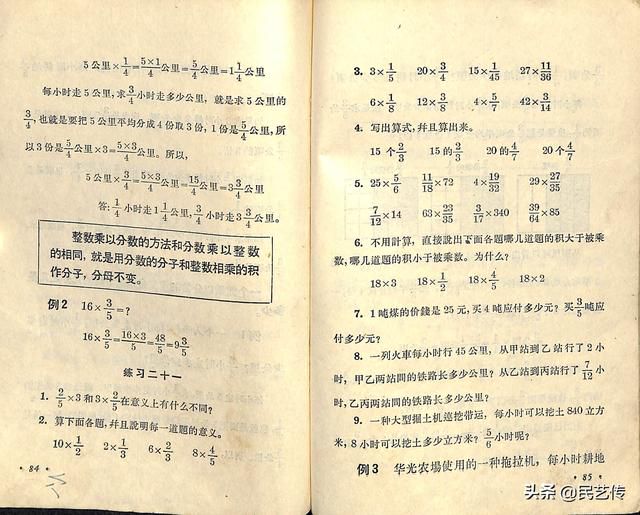 5公里×1/4=5×1/4公里=5/4公里=1 1/4公里
每小时走5公里,求3/4小时走多少公里,就是求5公里的
3/4,也就是要把5公里平均分成4份取3份,1份是5/4公里,所
以3份是5/4公里×3=5×3/4公里。所以,
5公里×3/4=5×3/4公里=15/4公里=3 3/4公里
答:1/4小时走1 1/4公里,3/4小时走3 3/4公里。
整数乘以分数的方法和分数乘以整数
的相同,就是用分数的分子和整数相乘的积
作分子,分母不变。
例2 16×3/5=?
16×3/5=16×3/5=48/5=9 3/5
练习二十一
1. 2/5×3和3×2/5在意义上有什么不同?
2. 算下面各题,幷且說明每一道题的意义。
10×1/2 2×1/3 6×2/3 8×4/5
·84·
3. 3×1/5 20×3/4 15×1/45 27×11/36
6×1/8 12×3/8 4×5/7 42×3/14
4. 写出算式,幷且算出来。
15个2/3 15的2/3 20的4/7 20个4/7
5. 25×5/6 11/18×72 4×19/32 29×27/35
7/12×14 63×23/35 3/17×340 39/64×85
6. 不用計算,直接說出下面各题哪几道题的积大于被乘
数,哪几道题的积小于被乘数。为什么?
18×3 18×1/3 18×4/5 18×2
7. 1吨煤的价錢是25元,买4吨应付多少元?买3/5吨应
付多少元?
8. 一列火車每小时行45公里,从甲站到乙站行了2小
时,甲乙两站間的铁路长多少公里?从乙站到丙站行了7/12小
时,乙丙两站間的铁路长多少公里?
9. 一种大型掘土机巡挖带运,每小时可以挖土840立方
米,8小时可以挖土多少立方米?5/6小时呢?
例3 华光农場使用的一种拖拉机,每小时耕地
·85·
头条 @民艺传